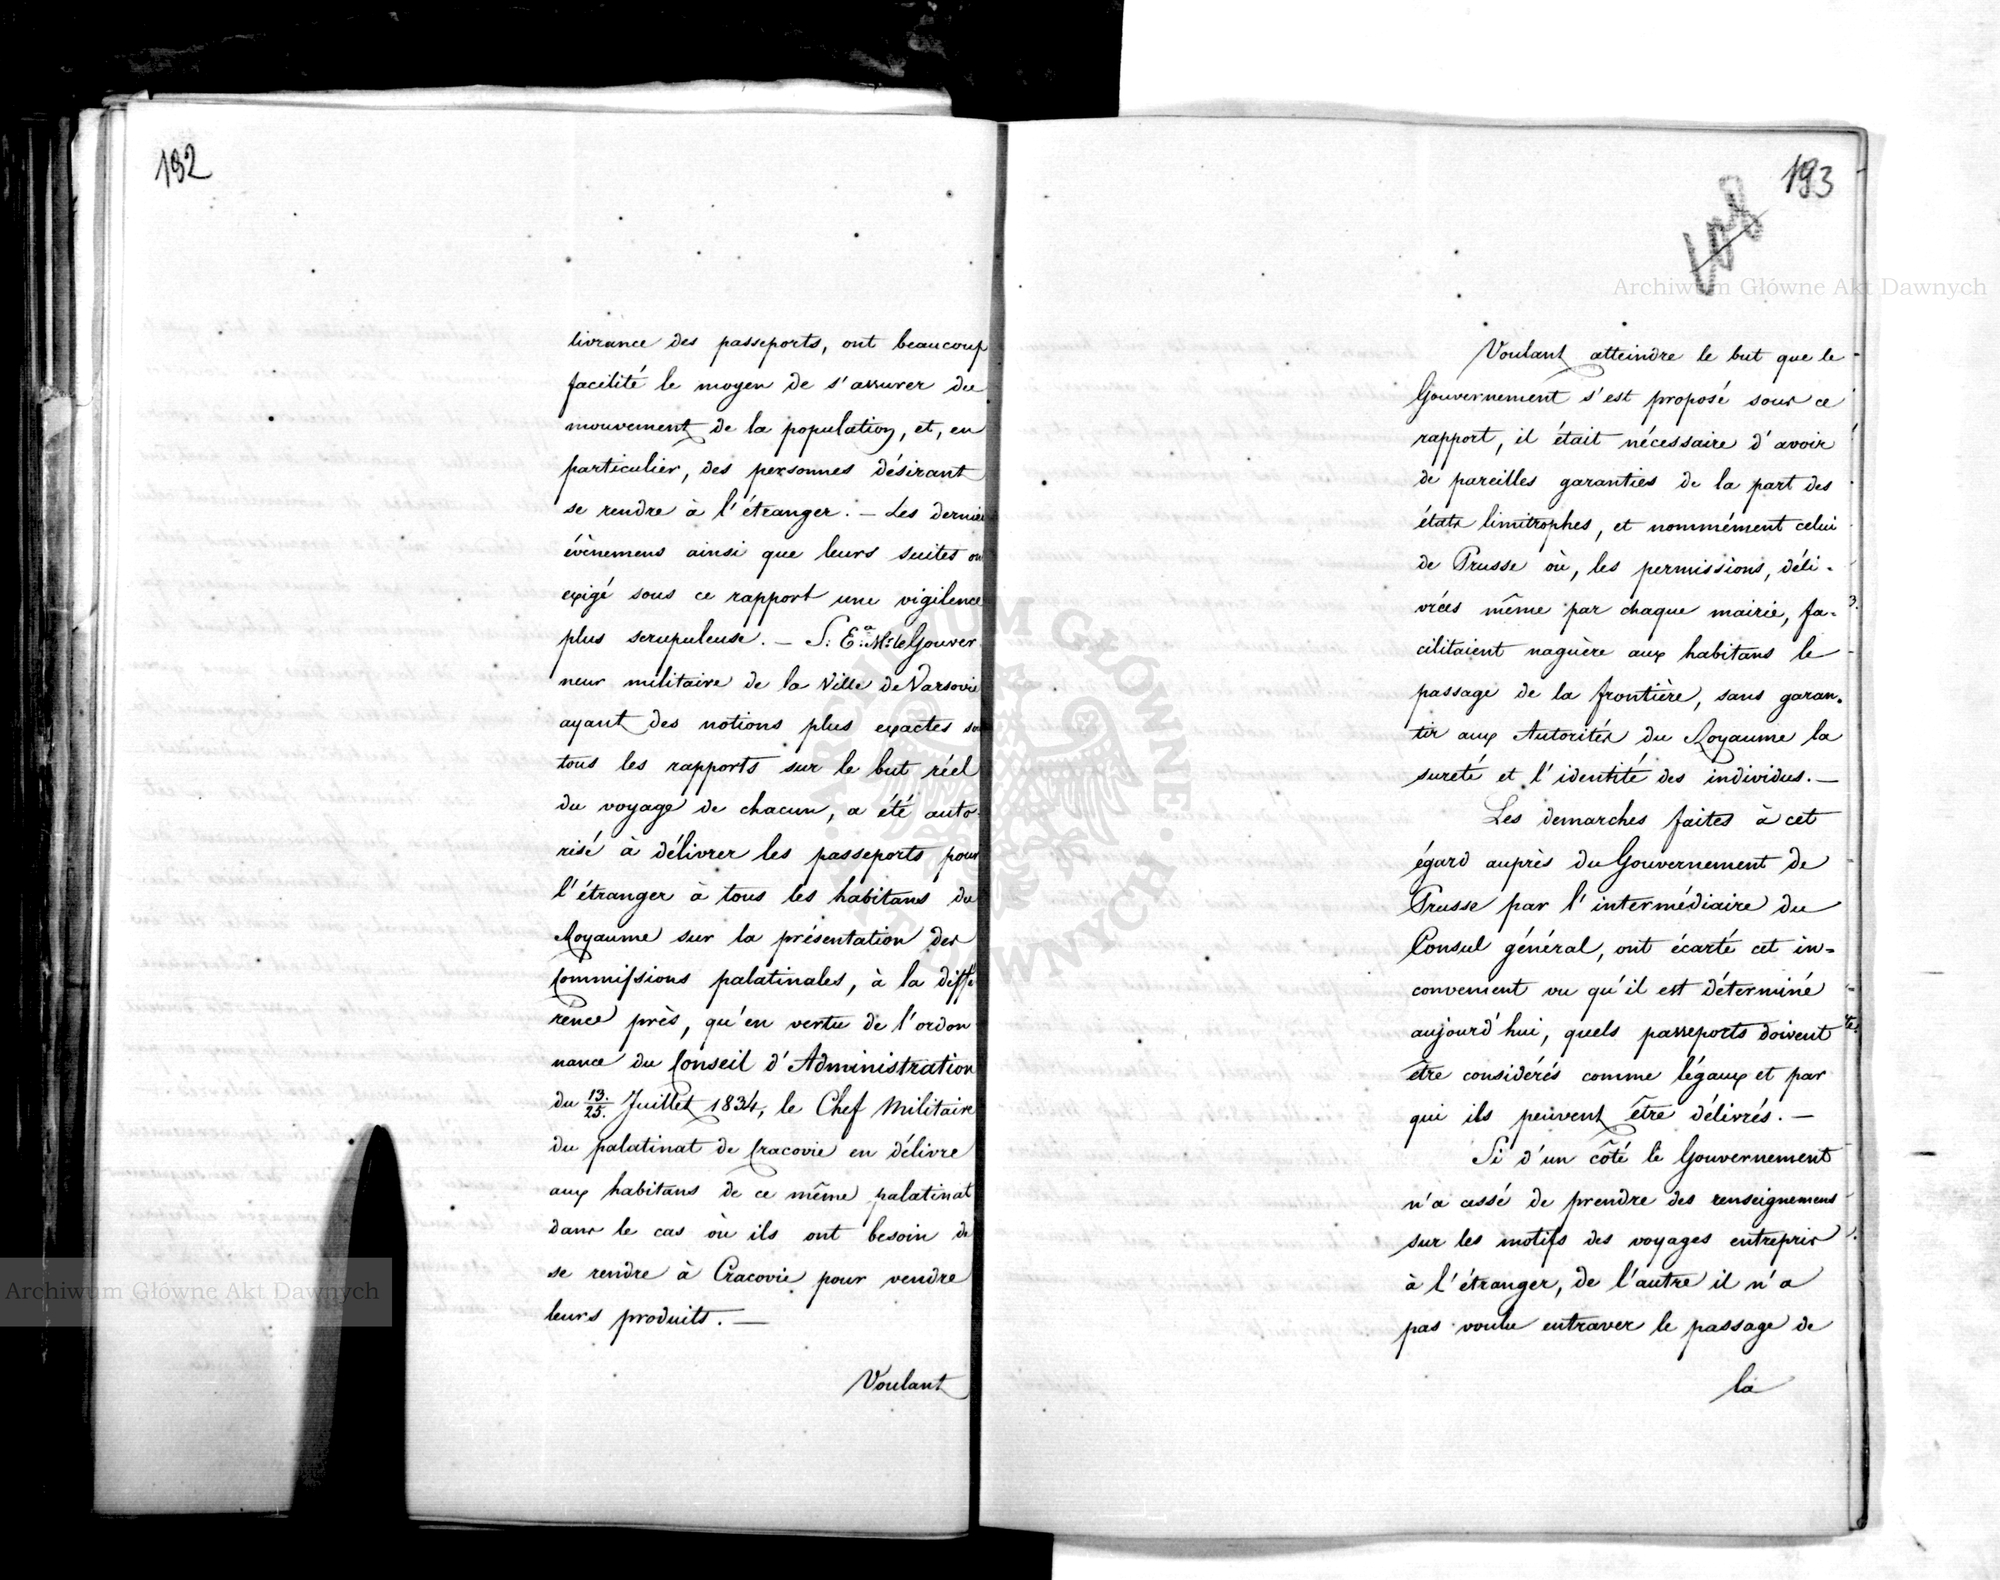 192
livrance des passeports, ont beaucoup
facilité le moyen de s'assurer du
mouvement de la population, et, en
particulier, des personnes désirant
se rendre à l'étranger. — Les dernier
évènemens ainsi que leurs suites on
exigé sous ce rapport une vigilence
plus scrupuleuse. — S. E. Mr. le Gouver
neur militaire de la Ville de Varsovie
ayant des notions plus exactes su
tous les rapports sur le but réel
du voyage de chacun, a été auto
risé à délivrer les passeports pour
l'étranger à tous les habitans du
Royaume sur la présentation des
Commissions palatinales, à la diffé
rence près, qu'en vertu de l'ordon
nance du Conseil d'Administration
du 13./25. Juillet 1834, le Chef Militaire
du palatinat de Cracovie en délivre
aux habitans de ce même palatinat
dans le cas où ils ont besoin de
se rendre à Cracovie pour vendre
leurs produits. —
Voulant
193
Voulant atteindre le but que le
Gouvernement s'est proposé sous ce
rapport, il était nécessaire d'avoir
de pareilles garanties de la part des
états limitrophes, et nommément celui
de Prusse où, les permissions, déli-
vrées même par chaque mairie, fa-
cilitaient naguère aux habitans le
passage de la frontière, sans garan-
tir aux Autorités du Royaume la
sureté et l'identité des individus. —
Les demarches faites à cet
égard auprès du Gouvernement de
Prusse par l'intermédiaire du
Consul général, ont écarté cet in-
convenient vu qu'il est déterminé
aujourd'hui, quels passeports doivent
être considérés comme légaux et par
qui ils peuvent être délivrés. —
Si d'un côté le Gouvernement
n'a cessé de prendre des renseignemens
sur les motifs des voyages entrepris
à l'étranger, de l'autre il n'a
pas voulu entraver le passage de
la
Archiwum Główne Akt Dawnych
Archiwum Główne Akt Dawnych
ARCHIWUM GŁÓWNE AKT DAWNYCH